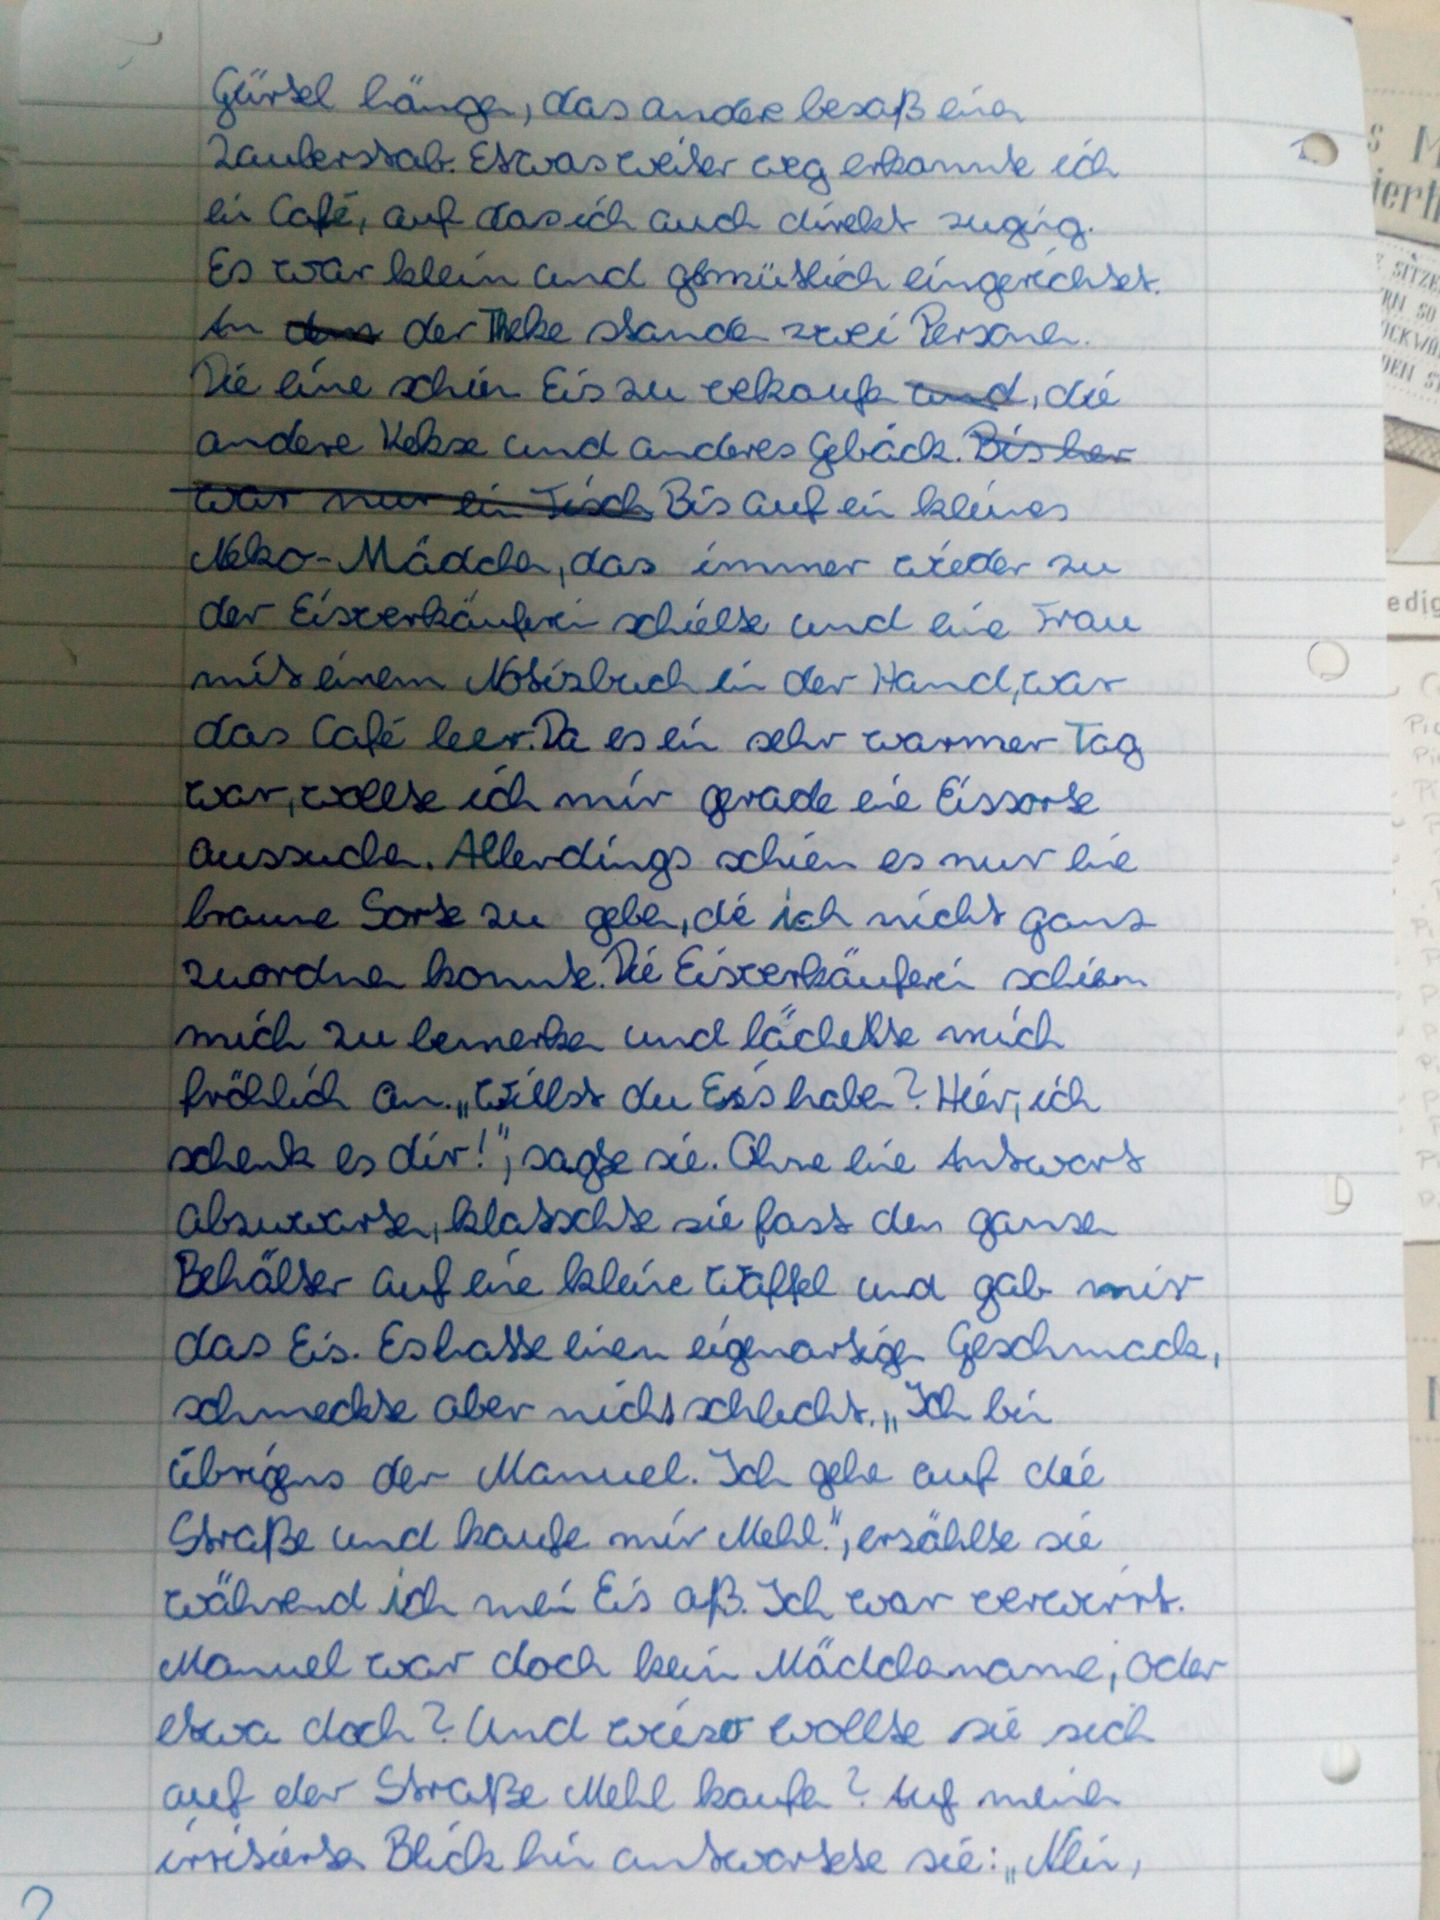 Gürtel hängen, das andere besaß einen
Zauberstab. Etwas weiter weg erkannte ich
ein Café, auf das ich auch direkt zuging.
Es war klein und gemütlich eingerichtet.
An der Theke standen zwei Personen.
Die eine schien Eis zu verkaufen und, die
andere Kekse und anderes Gebäck. Bisher
war nur ein Tisch Bis auf ein kleines
Neko-Mädchen, das immer wieder zu
der Eisverkäuferin schielte und eine Frau
mit einem Notizbuch in der Hand, war
das Café leer. Da es ein sehr warmer Tag
war, wollte ich mir gerade eine Eissorte
aussuchen. Allerdings schien es nur eine
braune Sorte zu geben, die ich nicht ganz
zuordnen konnte. Die Eisverkäuferin schien
mich zu bemerken und lächelte mich
fröhlich an. „Willst du Eis haben? Hier, ich
schenk es dir!", sagte sie. Ohne eine Antwort
abzuwarten, klatschte sie fast den ganzen
Behälter auf eine kleine Waffel und gab mir
das Eis. Es hatte einen eigenartigen Geschmack,
schmeckte aber nicht schlecht. „Ich bin
übrigens der Manuel. Ich gehe auf die
Straße und kaufe mir Mehl.", erzählte sie
während ich mein Eis aß. Ich war verwirrt.
Manuel war doch kein Mädchenname, oder
etwa doch? Und wieso wollte sie sich
auf der Straße Mehl kaufen? Auf meinen
irritierten Blick hin antwortete sie: „Nein,
2